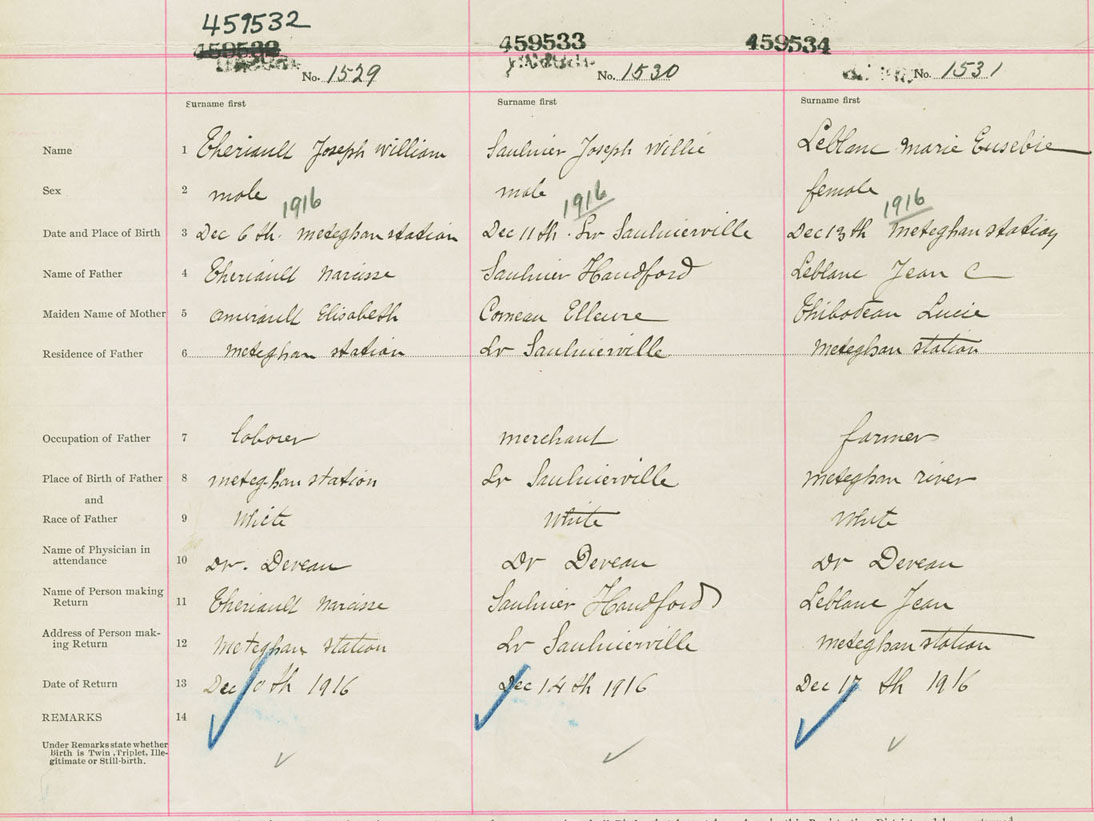 459532
459532 459533 459534
No. 1529 No. 1530 No. 1531
Surname first Surname first Surname first
Name 1 Theriault Joseph William Saulnier Joseph Willie Leblanc Marie Eusebie
Sex 2 male male female
1916 1916 1916
Date and Place of Birth 3 Dec 6th. Meteghan station Dec 11th. Lr Saulnierville Dec 13th Meteghan station
Name of Father 4 Theriault Narcisse Saulnier Handford Leblanc Jean C
Maiden Name of Mother 5 Amirault Elisabeth Comeau Thibodeau Lucie
Residence of Father 6 Meteghan station Lr Saulnierville Meteghan station
Occupation of Father 7 laborer merchant farmer
Place of Birth of Father 8 meteghan station Lr Saulnierville meteghan river
and
Race of Father 9 White White White
Name of Physician in
attendance 10 Dr. Deveau Dr Deveau Dr Deveau
Name of Person making
Return 11 Theriault Narcisse Saulnier Handford Leblanc Jean
Address of Person mak-
ing Return 12 Meteghan station Lr Saulnierville Meteghan station
Date of Return 13 Dec 10th 1916 Dec 14th 1916 Dec 17th 1916
REMARKS 14
Under Remarks state whether
Birth is Twin, Triplet, Ille-
gitimate or Still-birth.